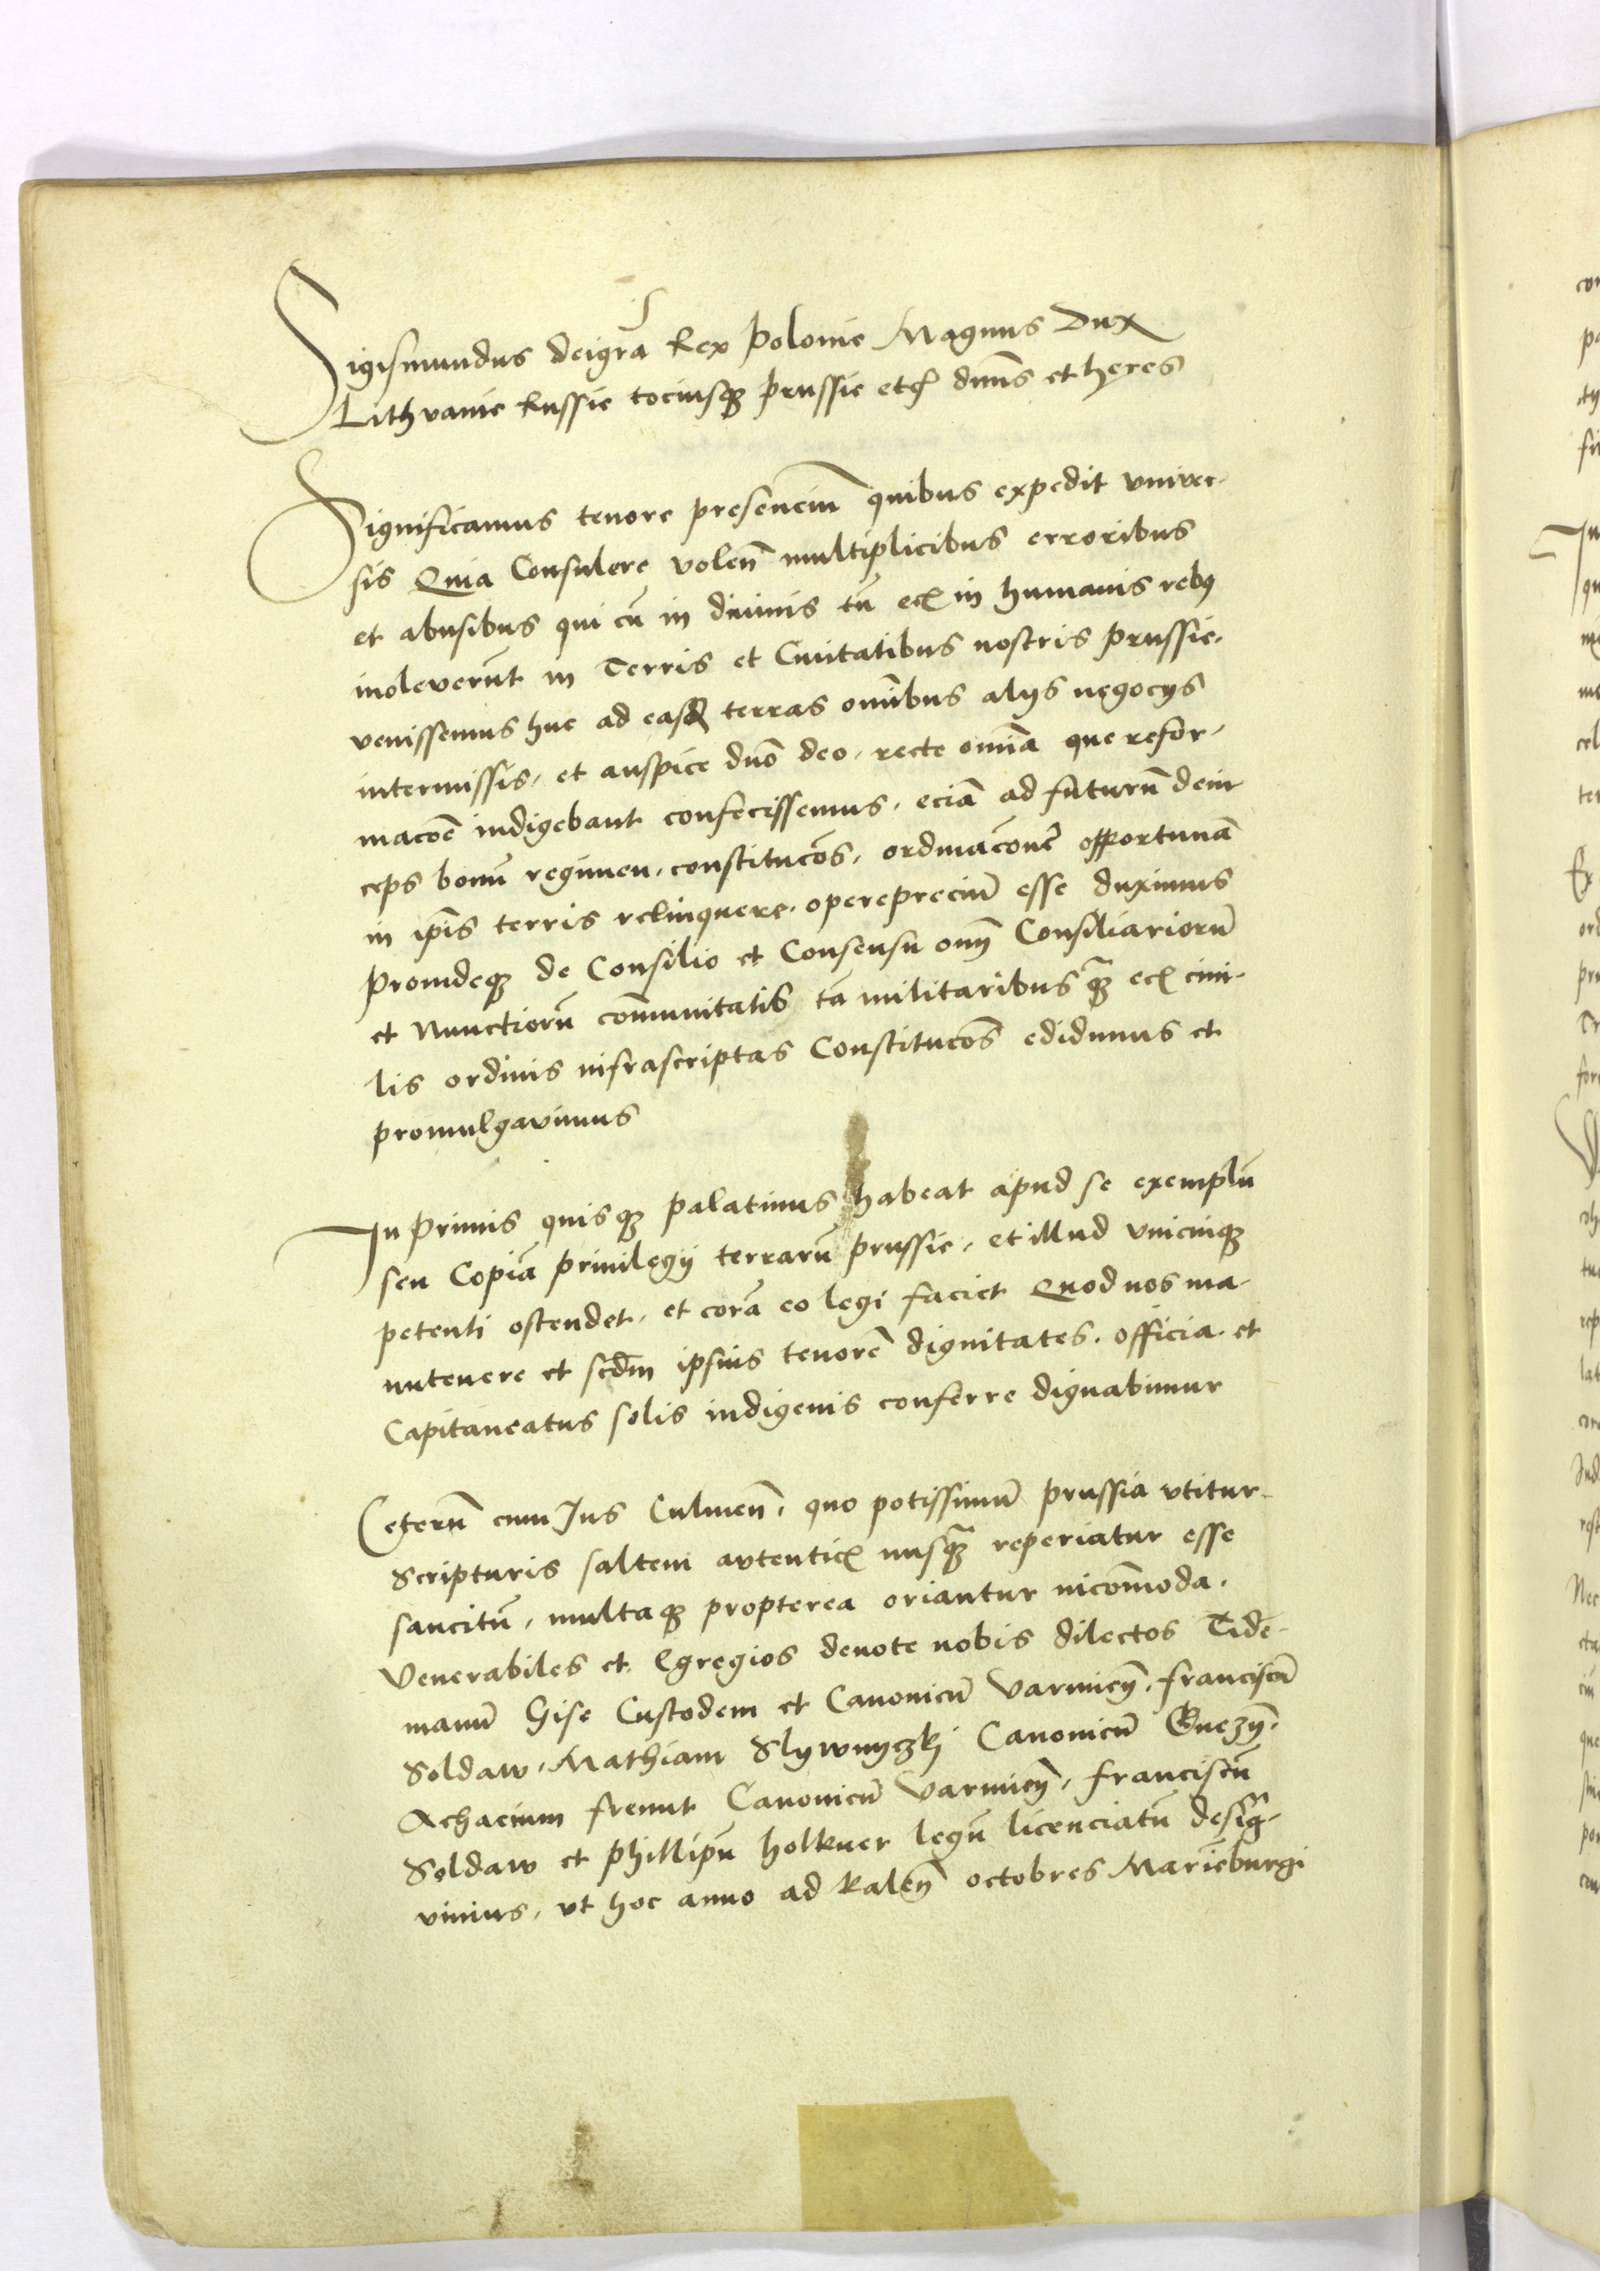 Sigismundus deigra Rex Polonie Magnus Dux
Lithvanie Russie tociusqʒ prussie etc̃ dnns et heres
Significamus tenore presencium quibus expedit vniver-
sis Quia Consulere volen̄ multiplicibus erroribus
et abusibus qui cū in diuinis tū ec̄ in humanis rebꝯ
inoleverūt in Terris et Ciuitatibus nostris prussie.
venissemus huc ad easd̄ terras om̄ibus alijs negocijs
intermissis, et auspice dn̄o deo, recte om̄ia que refor-
macōe indigebant confecissemus, eciā ad futurū dein
ceps bonū regimen, constitucōs, ordinacōne opportunā
in ip̄is terris relinquere, opereprecium̄ esse duximus
Proindeqʒ de Consilio et Consensu om̄ Consiliariorū
et Nunctiorū com̄unitatis tā militaribus qʒ ec̄ ciui-
lis ordinis infrascriptas Constitucōs edidimus et
promulgavimus
In Primis quisqʒ palatinus habeat apud se exemplū
seu Copiā priuilegij terrarū prussie, et illud vnicuiqʒ
petenti ostendet, et corā eo legi faciet Quod nos ma-
nutenere et scd̄m ipsius tenorē dignitates, officia et
Capitaneatus solis indigenis conferre dignabimur
Ceterū cum Jus Culmen̄, quo potissimū prussia vtitur
Scripturis saltem autentic̄ nusqʒ reperiatur esse
sancitū, multaqʒ propterea oriantur incōmoda,
Venerabiles et Egregios deuote nobis dilectos Tide-
manū Gise Custodem et Canonicū Varmien̄, franciscū
Soldaw, Mathiam Slywnyczkj Canonicū Gnezn̄,
Achacium frennt Canonicū Varmien̄, franciscū
Soldaw et Phillipū holkner legū licenciatū desig-
vimus, vt hoc anno ad kalen̄ octobres Marieburgi